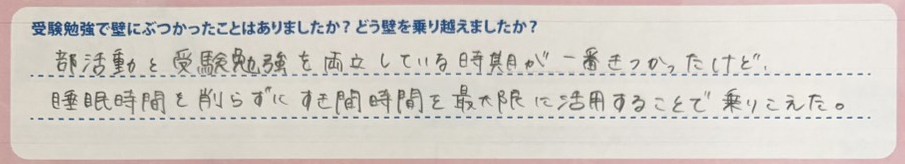 受験勉強で壁にぶつかったことはありましたか？どう壁を乗り越えましたか？
部活動と受験勉強を両立している時期が一番きつかったけど、
睡眠時間を削らずにすき間時間を最大限に活用することで乗りこえた。